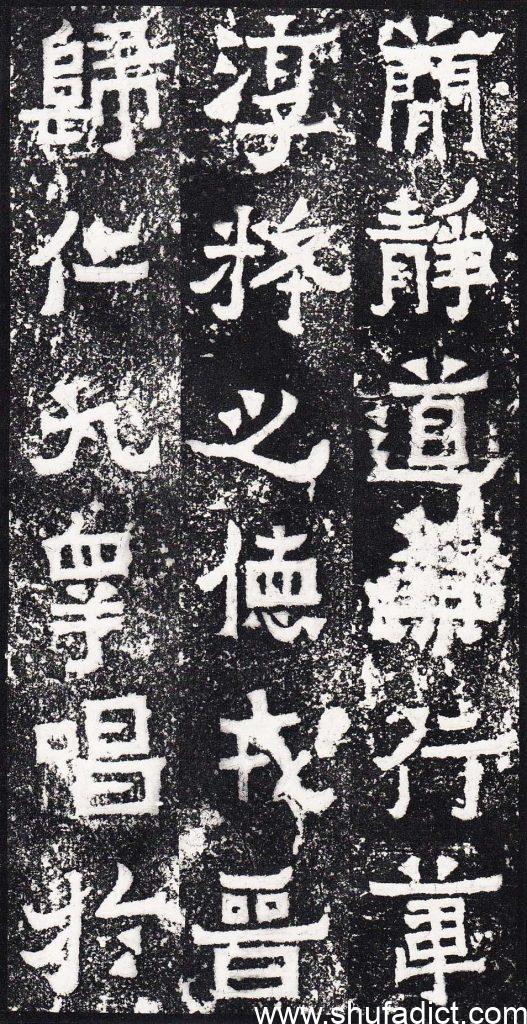 簡靜道兼行葦
淳粹之德戎晉
歸仁九皋唱於
www.shufadict.com